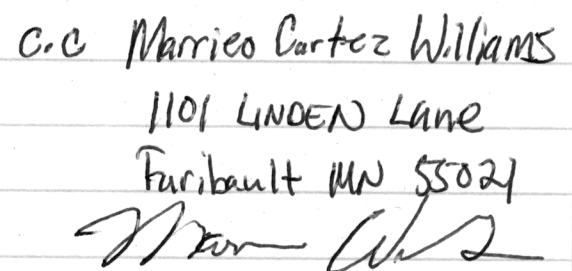 C.C Marrieo Cartez Williams
1101 LINDEN Lane
Faribault MN 55021